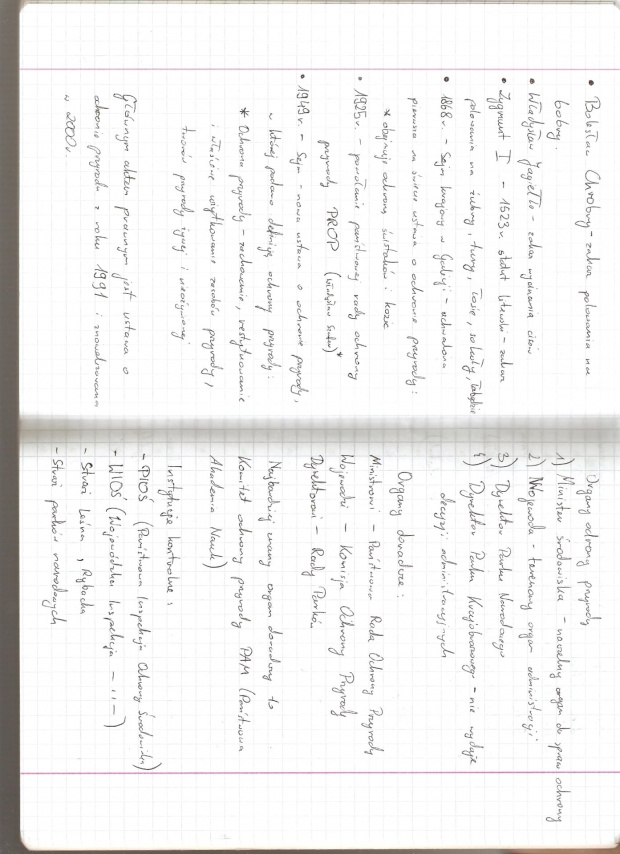 • Bolesław Chrobry – zakaz polowania na
bobry.
• Władysław Jagiełło – zakaz wycinania cisów
• Zygmunt I – 1523r. statut litewski – zakaz
polowania na żubry, tury, łosie, sokoły, łabędzie
• 1868r. – Sejm krajowy w Galicji – uchwalona
pierwsza na świecie ustawa o ochronie przyrody:
* obejmuje ochronę świstaków i kozic
• 1925r. – powołanie państwowej rady ochrony
przyrody PROP (Władysław Szafer)*
• 1949r. – Sejm – nowa ustawa o ochronie przyrody,
w której podano definicję ochrony przyrody:
* Ochrona przyrody – zachowanie, restytuowanie
i właściwe użytkowanie zasobów przyrody,
tworów przyrody żywej i nieożywionej
Głównym aktem prawnym jest ustawa o
ochronie przyrody z roku 1991 i znowelizowana
w 2000r.
Organy ochrony przyrody
1) Minister środowiska – naczelny organ do spraw ochrony
2) Wojewoda – terenowy organ administracji
3) Dyrektor Parku Narodowego
4) Dyrektor Parku Krajobrazowego – nie wydaje
decyzji administracyjnych
Organy doradcze:
Ministrowi – Państwowa Rada Ochrony Przyrody
Wojewodzie – Komisja Ochrony Przyrody
Dyrektorowi – Rady Parków
Najbardziej znany organ doradczy to
Komitet ochrony przyrody PAN (Państwowa
Akademia Nauk)
Instytucje kontrolne:
– PIOŚ (Państwowa Inspekcja Ochrony Środowiska)
– WIOŚ (Wojewódzka Inspekcja – ,, –)
– Straż Leśna, Rybacka
– Straż parków narodowych